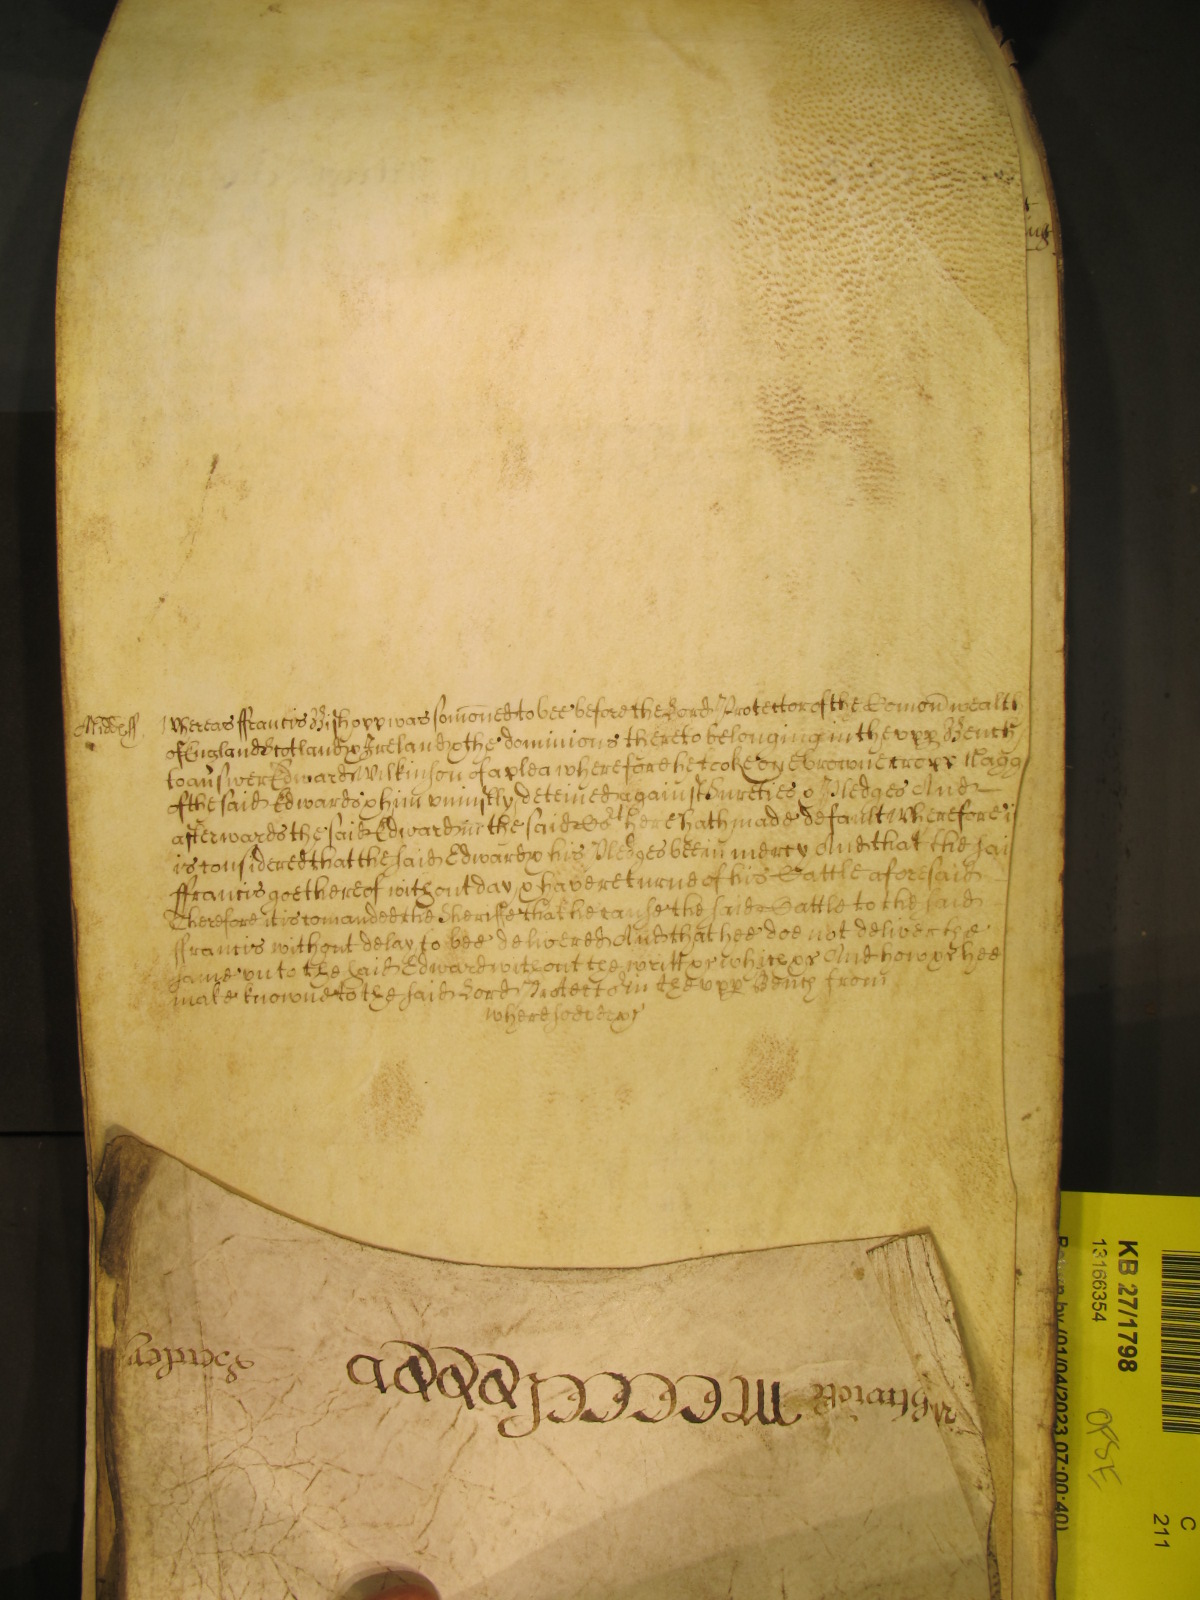 ing
Midds ss
Whereas ffrancis Bishopp was somoned to bee before the Lord Protector of the Comon wealth
of England Scotland & Ireland & the dominions thereto belonging in the upp Bench
to answer Edward Wilkinson of a plea wherefore he tooke one browne Nagg
of the said Edwards & him uniustly deteined against Sureties & Pledges And
afterwards the said Edward in the said Cort here hath made default Wherefore i
is considered that the said Edward & his Pledges bee in mercy And that the sai
ffrancis goe thereof without day & have returne of his Cattle aforesaid
Therefore it is comanded the Sheriffe that he cause the said Cattle to the said
ffrancis without delay to bee delivered And that hee doe not deliver the
same unto the said Edward without the writt &c which &c And how &c hee
make knowne to the said Lord Protector in the upp Bench from
wheresoever &c
KB 27/1798
13166354
(01/04/2023 07:00:40)
C
211